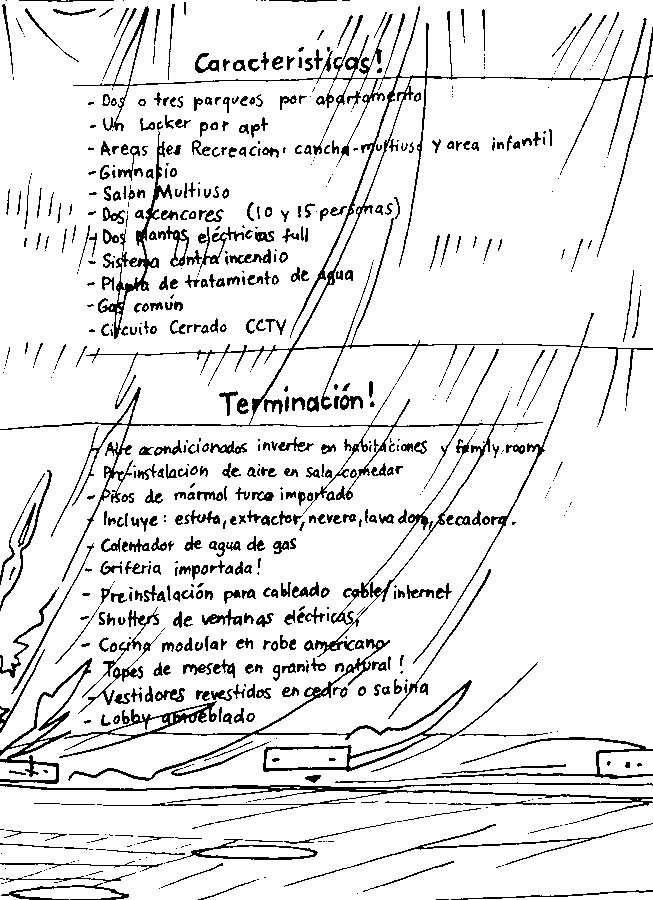 Características!
- Dos o tres parqueos por apartamento
- Un Locker por apt
- Areas des Recreacion: cancha-multiuso y area infantil
- Gimnasio
- Salón Multiuso
- Dos ascencores (10 y 15 personas)
- Dos plantas eléctricias full
- Sistema contra incendio
- Planta de tratamiento de agua
- Gas común
- Circuito Cerrado CCTV
Terminación!
- Aire acondicionados inverter en habitaciones y family room
- Pre-instalacion de aire en sala comedar
- Pisos de mármol turco importado
- Incluye: estufa, extractor, nevera, lavadora, secadora.
- Calentador de agua de gas
- Griferia importada!
- Preinstalación para cableado cable/internet
- Shutters de ventanas eléctricas,
- Cocina modular en robe americano
- Topes de meseta en granito natural!
- Vestidores revestidos en cedro o sabina
- Lobby amueblado